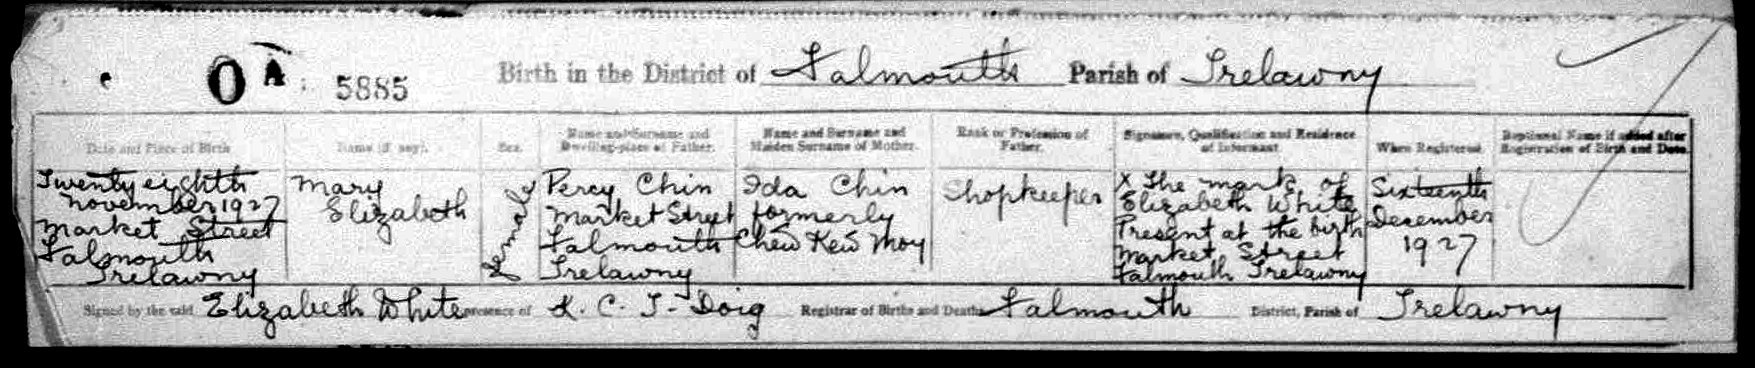 O A 5885 Birth in the District of Falmouth Parish of Trelawny
Date and Place of Birth
Name (if any).
Sex.
Name and Surname and
Dwelling-place of Father.
Name and Surname and
Maiden Surname of Mother.
Rank or Profession of
Father.
Signature, Qualification and Residence
of Informant
When Registered
Baptismal Name if added after
Registration of Birth and Date.
Twenty eighth
november 1927
Market Street
Falmouth
Trelawny
Mary
Elizabeth
Female
Percy Chin
Market Street
Falmouth
Trelawny
Ida Chin
formerly
Chew Kew Moy
Shopkeeper
X The mark of
Elizabeth White
Present at the birth
Market Street
Falmouth Trelawny
Sixteenth
December
1927
Signed by the said Elizabeth White presence of K. C. T. Doig Registrar of Births and Deaths Falmouth District, Parish of Trelawny